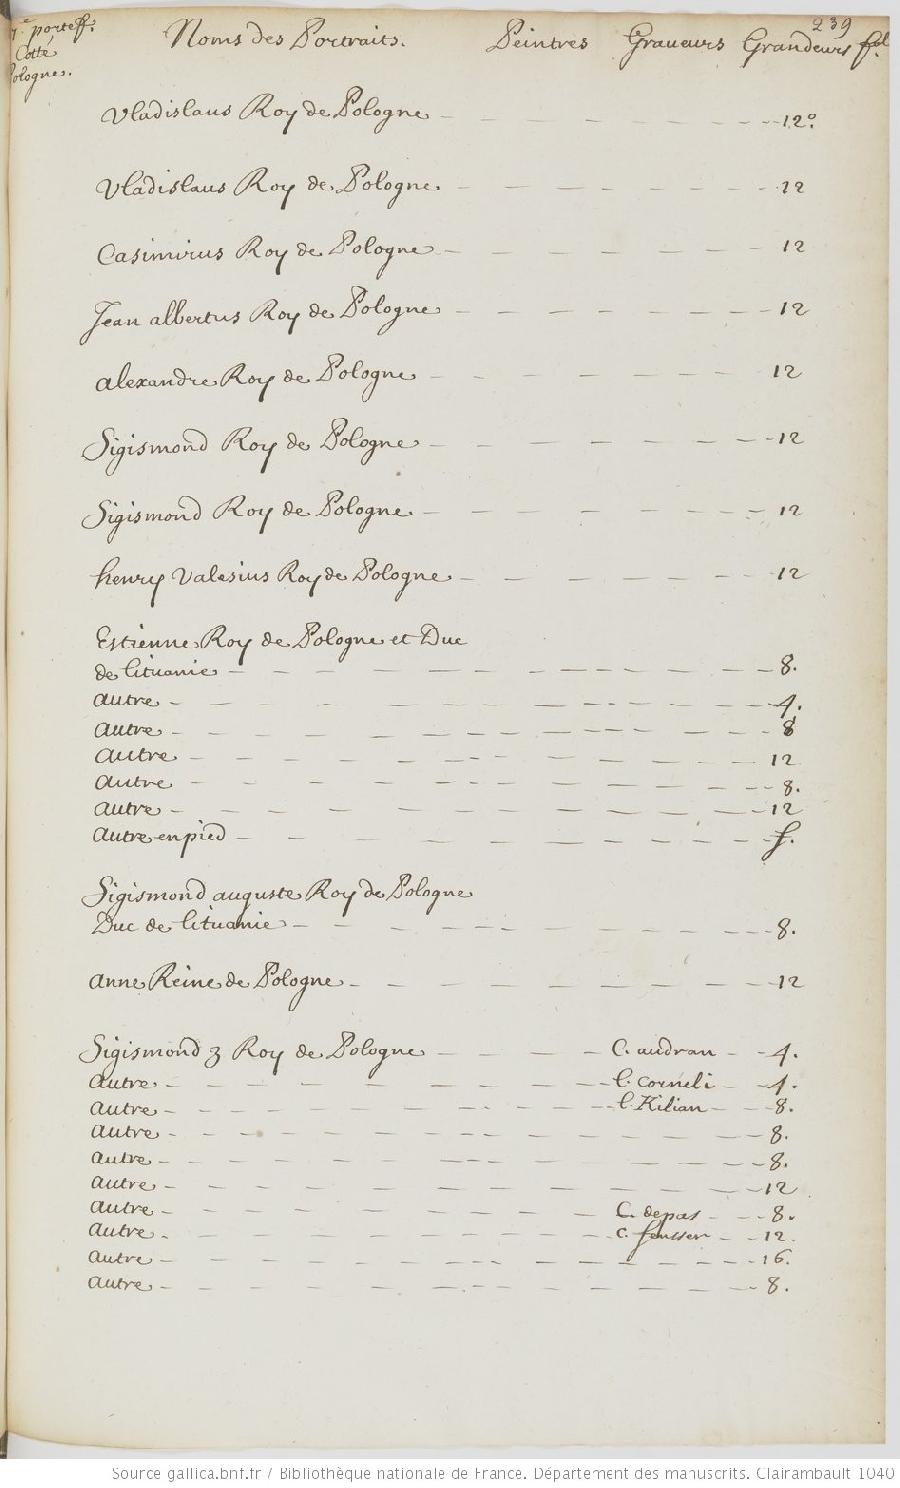 239
portef. Noms des Portraits. Peintres Graveurs Grandeurs fol.
Cotté
Pologne.
Vladislaus Roy de Pologne 12º.
Vladislaus Roy de Pologne. 12
Casimirus Roy de Pologne 12
Jean albertus Roy de Pologne 12
alexandre Roy de Pologne 12
Sigismond Roy de Pologne 12
Sigismond Roy de Pologne 12
henry Valesius Roy de Pologne 12
Estienne Roy de Pologne et Duc
de lituanie 8.
autre 4.
autre 8
autre 12
autre 8.
autre 12
autre en pied f.
Sigismond auguste Roy de Pologne
Duc de lituanie 8.
anne Reine de Pologne 12
Sigismond 3 Roy de Pologne C. audran 4.
autre l. corneli 4.
autre l. Kilian 8.
autre 8.
autre 8.
autre 12
autre C. depas 8.
autre c. 12.
autre 16.
autre 8.
Source gallica.bnf.fr / Bibliothèque nationale de France. Département des manuscrits. Clairambault 1040